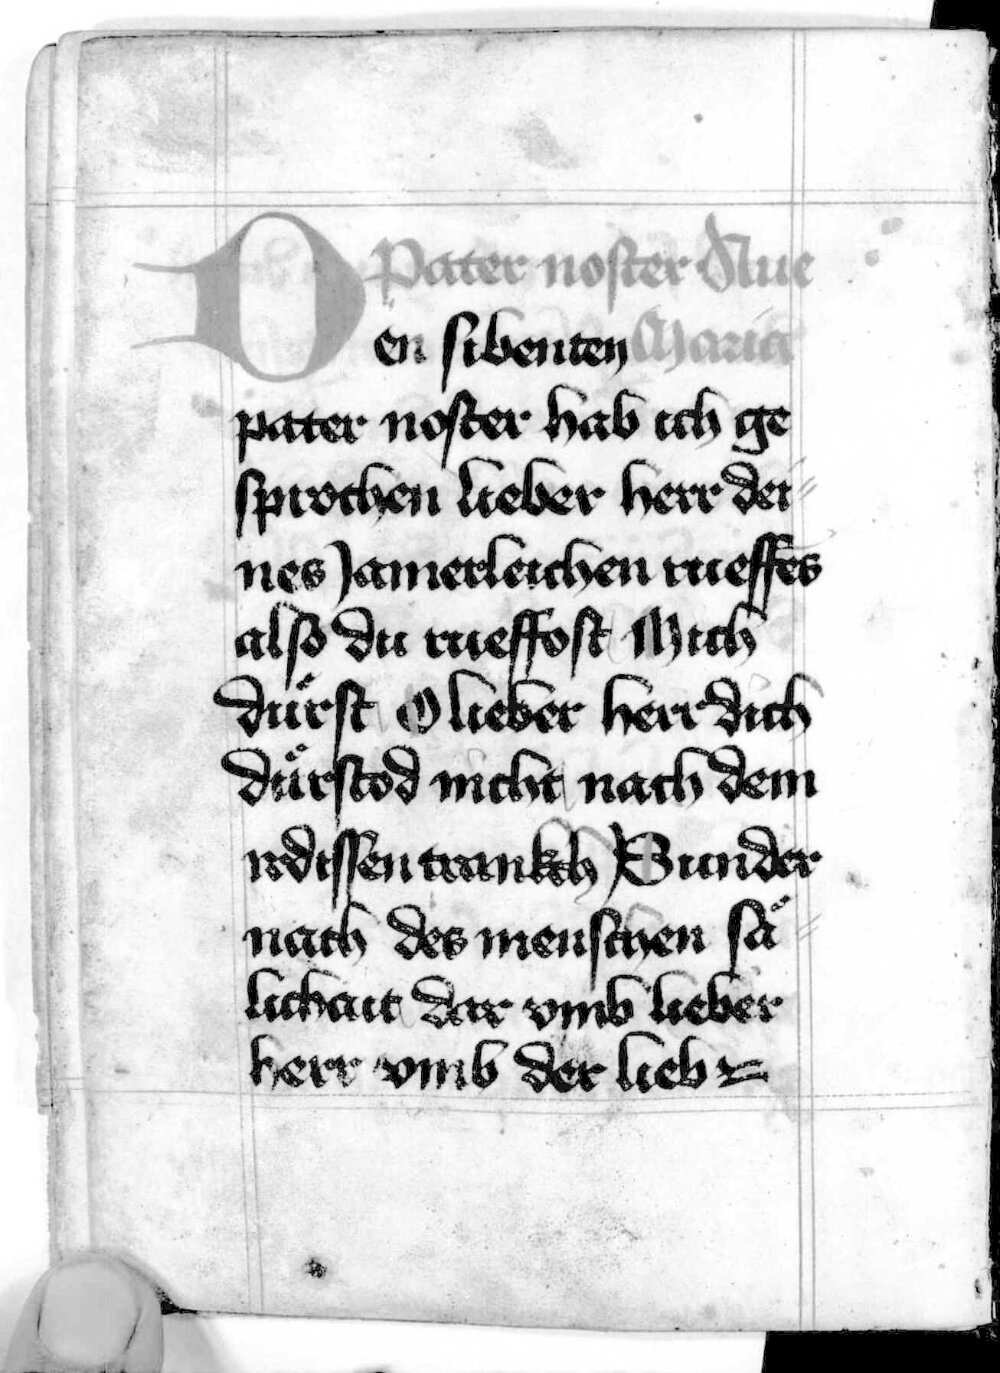 Pater noster Aue
Den sibenten Maria
pater noster hab ich ge
sprochen lieber herr dei
nes Jamerleichen rueffes
also du rueffost Mich
dürst O lieber herr dich
dürstod nicht nach dem
irdissen trankch Sunder
nach des menschen sä
lichait dar vmb lieber
herr vmb der lieb